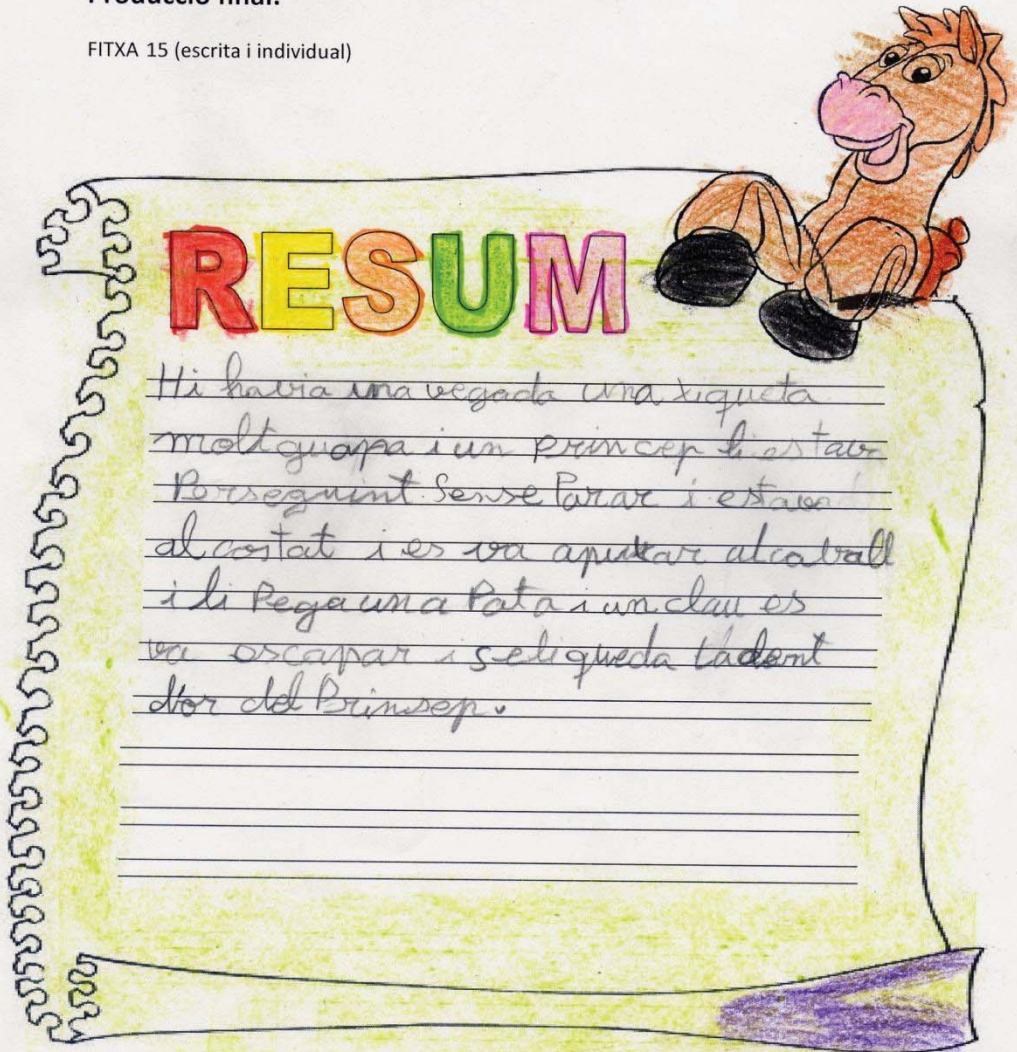 Producció final:
FITXA 15 (escrita i individual)
RESUM
Hi havia una vegada una xiqueta
molt guapa i un princep li estava
Perseguint Sense Parar i estava
al costat i es va apuxar al cavall
i li Pega una Pata i un clau es
va escapar i se li queda La dent
d'or del Prinsep.